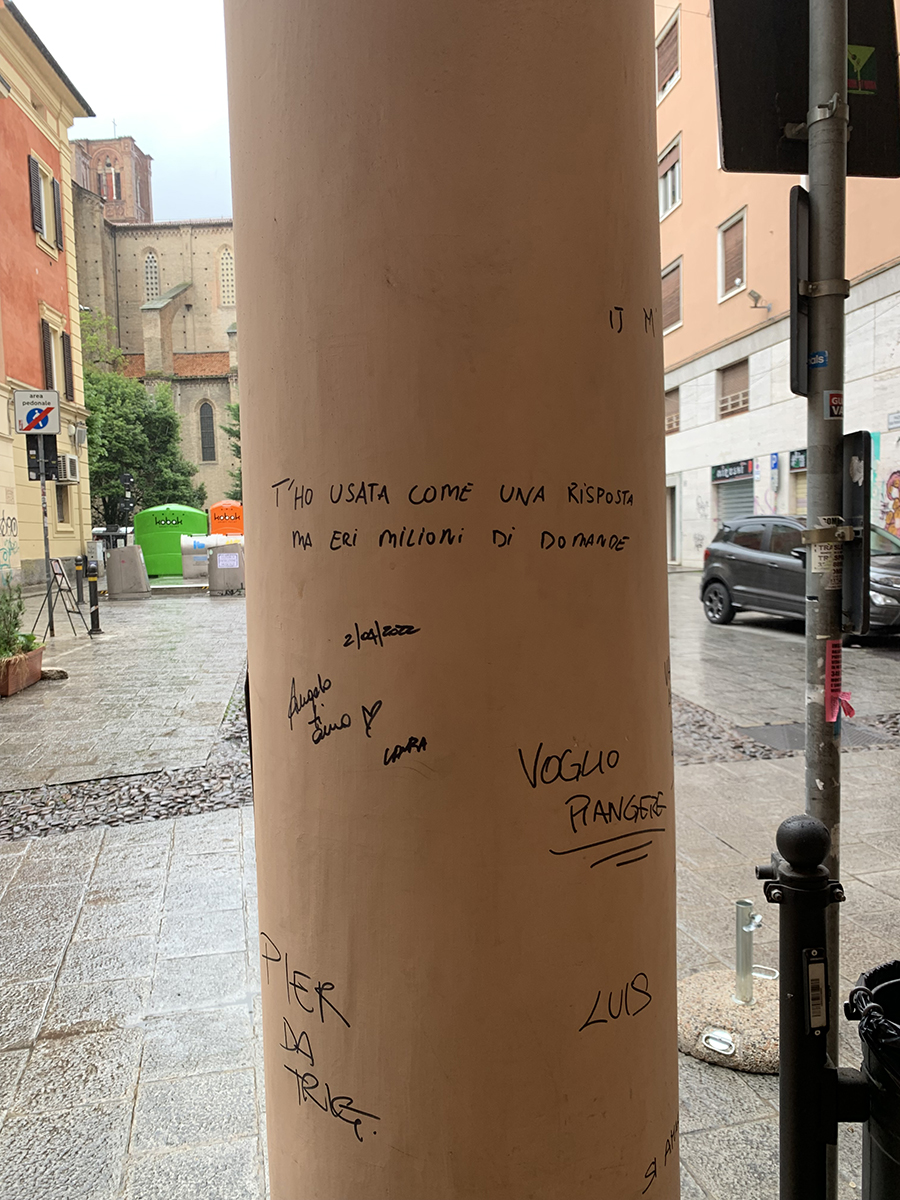 area
pedonale
kobak
kobak
IJ M
T'HO USATA COME UNA RISPOSTA
MA ERI MILIONI DI DOMANDE
2/04/2022
Angelo
LAURA
VOGLIO
PIANGERE
PIER
DA
LUIS
SI